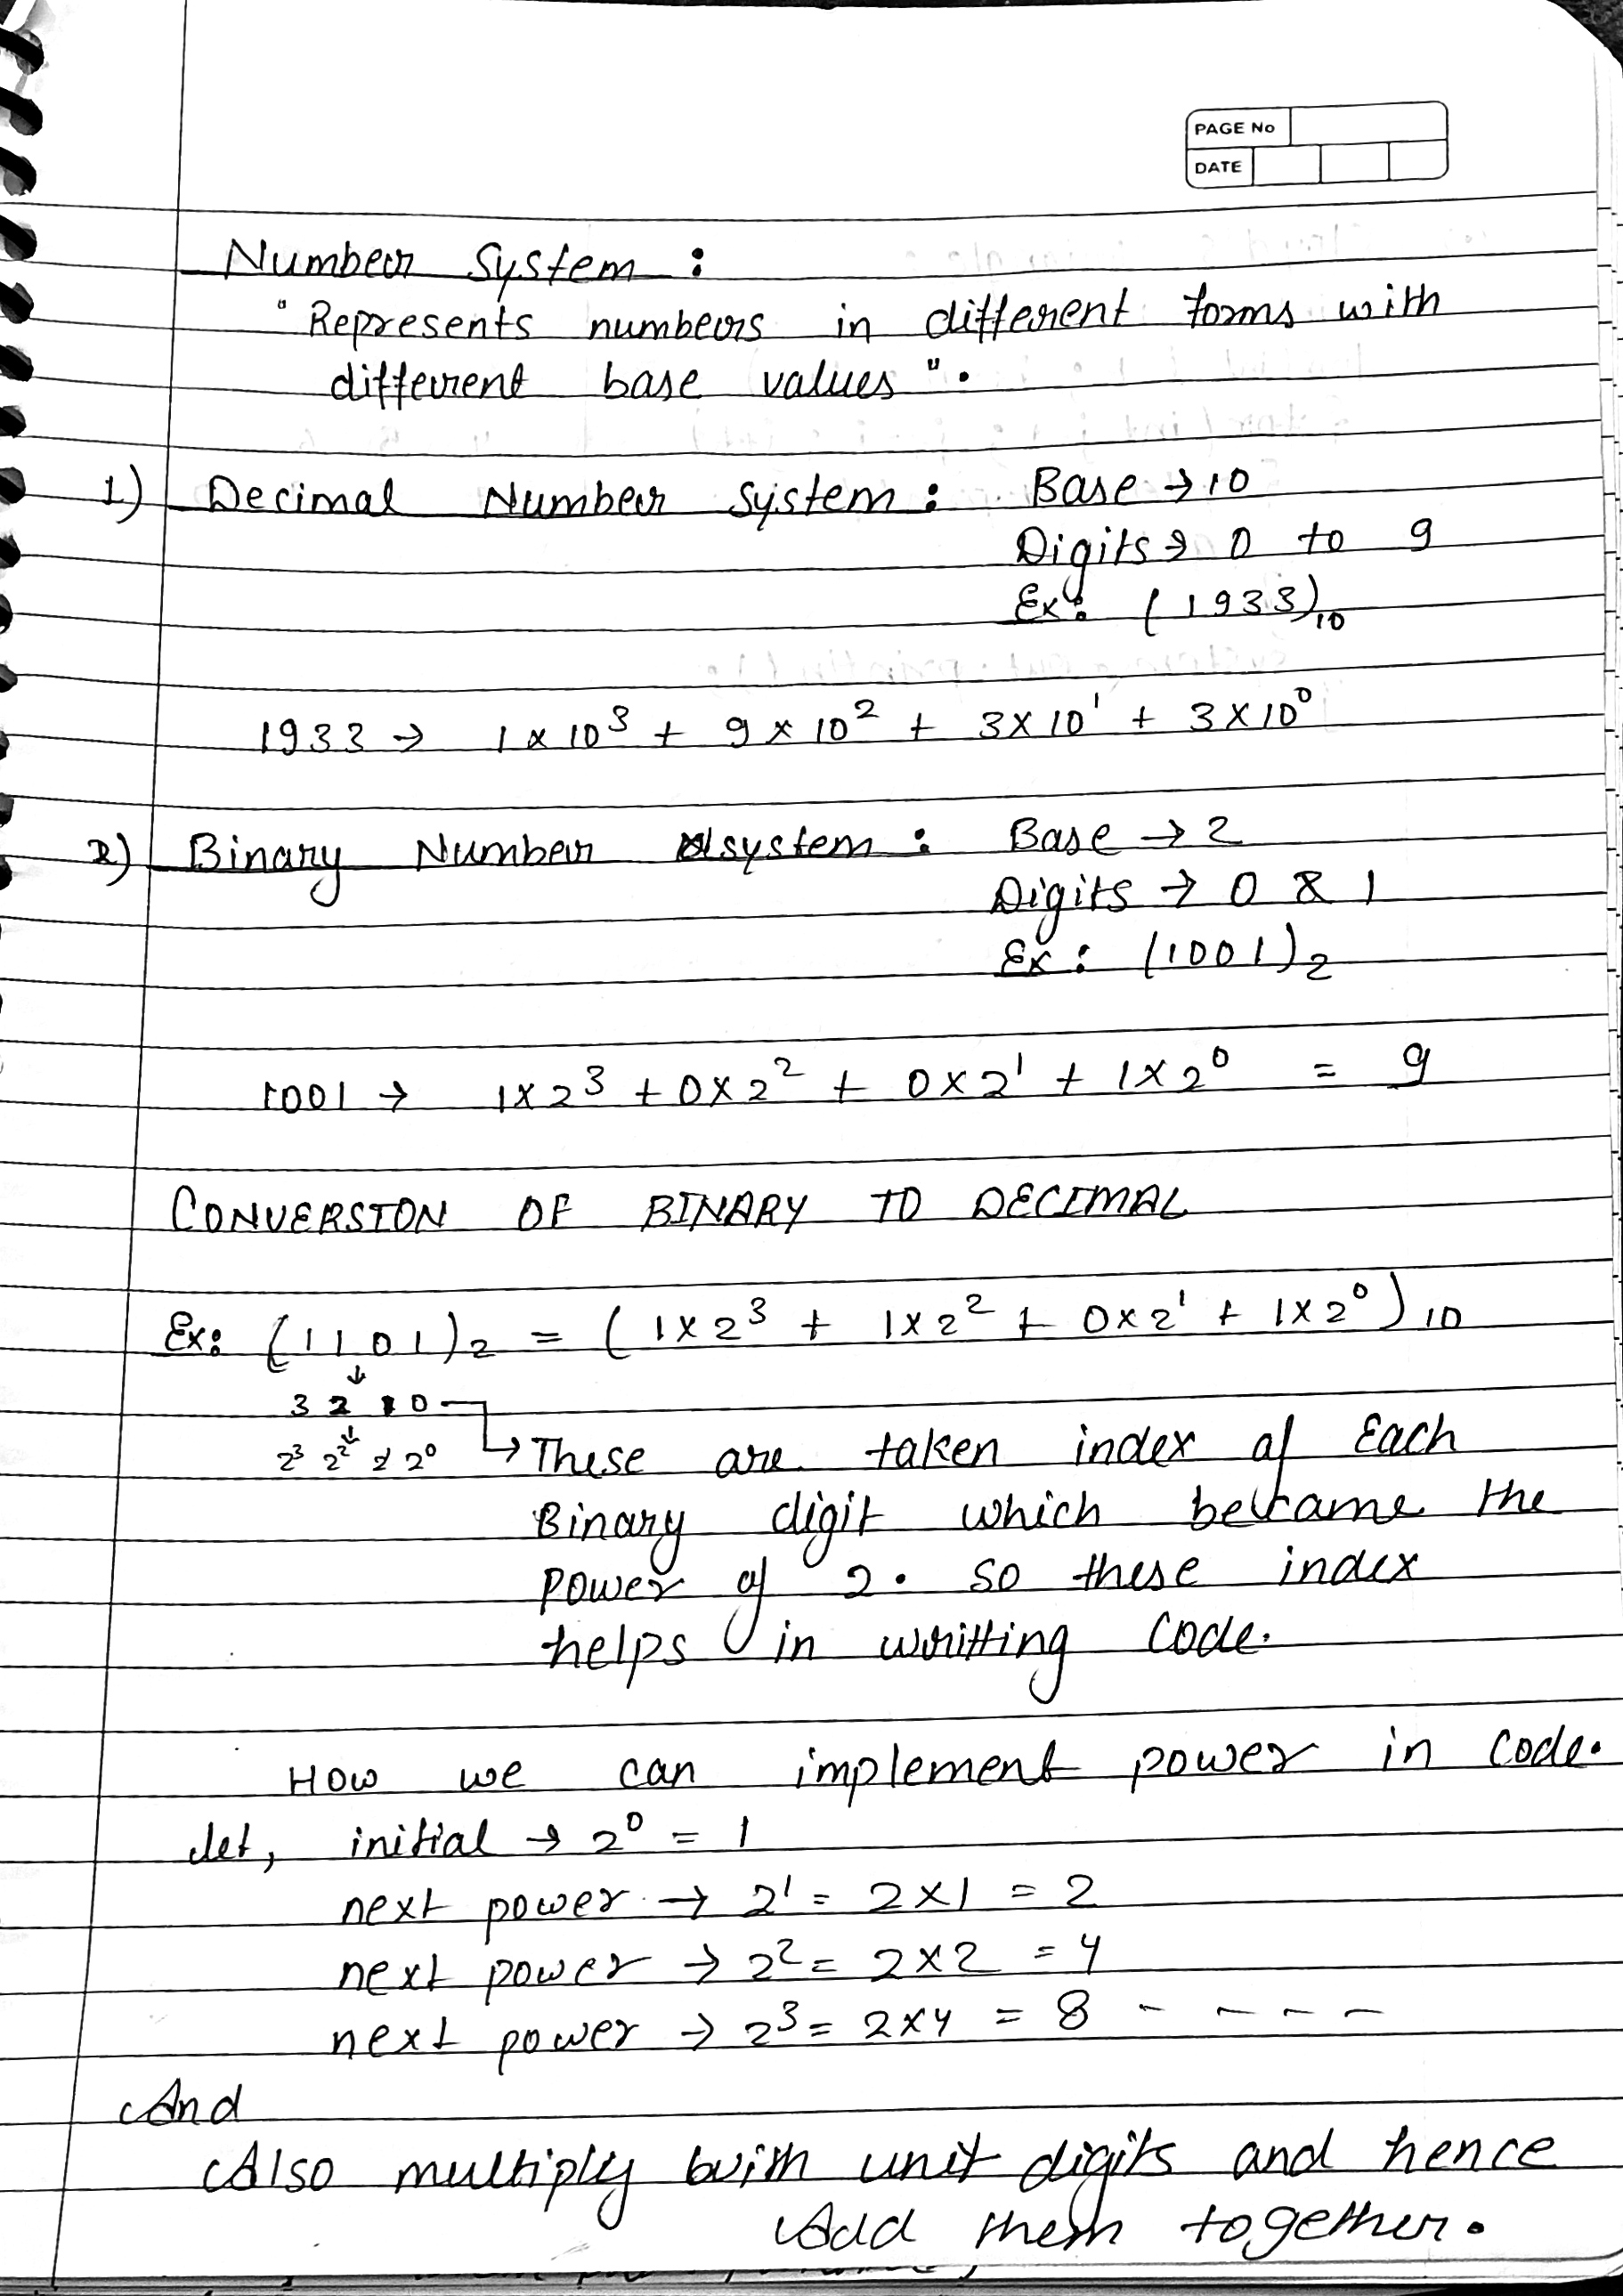 PAGE No
DATE
Number System :
"Represents numbers in different forms with
different base values".
1) Decimal Number System : Base → 10
Digits → 0 to 9
Ex: (1933)₁₀
1933 → 1×10³ + 9×10² + 3×10¹ + 3×10⁰
2) Binary Number system : Base → 2
Digits → 0 & 1
Ex: (1001)₂
1001 → 1×2³ + 0×2² + 0×2¹ + 1×2⁰ = 9
CONVERSION OF BINARY TO DECIMAL
Ex: (1101)₂ = (1×2³ + 1×2² + 0×2¹ + 1×2⁰)₁₀
↓
3 2 1 0
2³ 2² 2¹ 2⁰ ↳ These are taken index of Each
Binary digit which became the
power of 2. so these index
helps in writting code.
How we can implement power in code.
Let, initial → 2⁰ = 1
next power → 2¹ = 2×1 = 2
next power → 2² = 2×2 = 4
next power → 2³ = 2×4 = 8 - - - -
And
Also multiply with unit digits and hence
Add them together.